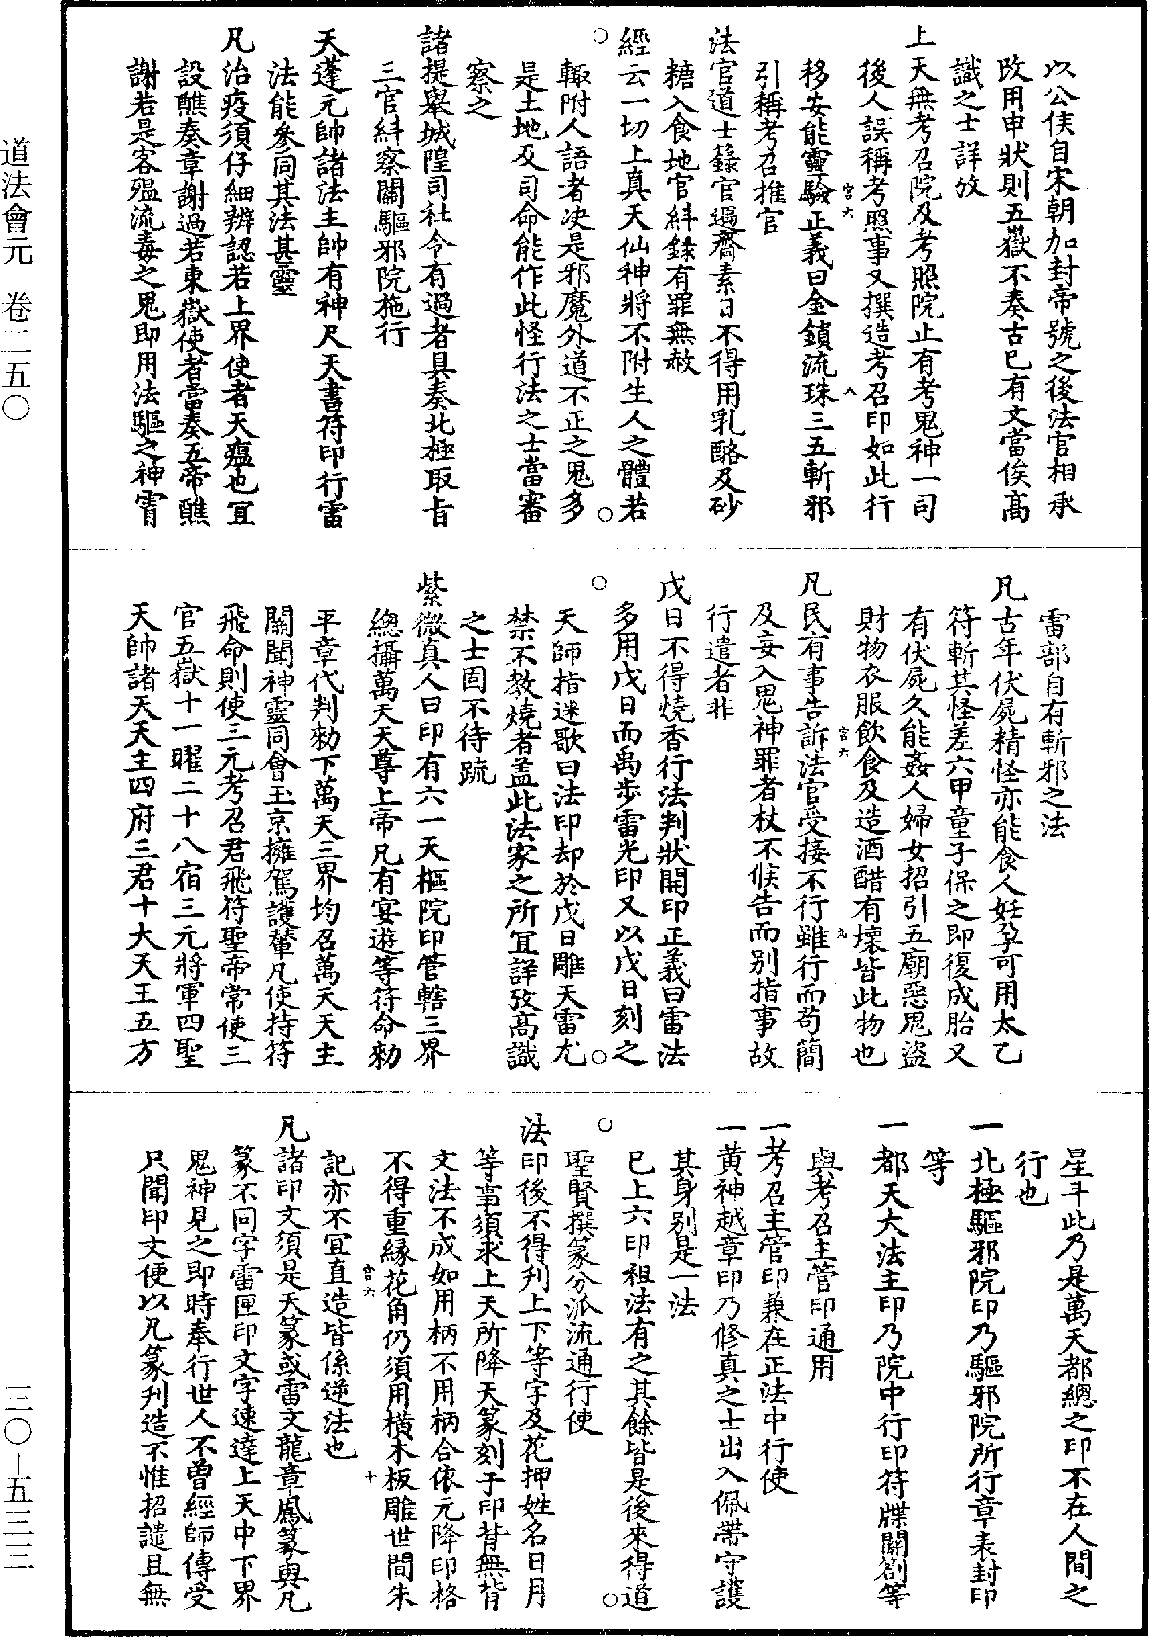 以公侯自宋朝加封帝號之後法官相承
改用申狀則五嶽不奏古已有文當俟高
識之士詳攷
上天無考召院及考照院止有考鬼神一司
後人誤稱考照事又撰造考召印如此行
移安能靈驗正義曰金鎖流珠三五斬邪
引稱考召推官
法官道士籙官遇齋素日不得用乳酪及砂
糖入食地官糾錄有罪無赦
經云一切上真天仙神將不附生人之體若
輒附人語者決是邪魔外道不正之鬼多
是土地及司命能作此怪行法之士當審
察之
諸提舉城隍司社令有過者具奏北極取旨
三官糾察關驅邪院施行
天蓬元帥諸法主帥有神尺天書符印行雷
法能參同其法甚靈
凡治疫須仔細辨認若上界使者天瘟也宜
設醮奏章謝過若東嶽使者當奏五帝醮
謝若是客瘟流毒之鬼即用法驅之神霄
雷部自有斬邪之法
凡古年伏屍精怪亦能食人妊孕可用太乙
符斬其怪差六甲童子保之即復成胎又
有伏屍久能姦人婦女招引五廟惡鬼盜
財物衣服飲食及造酒醋有壞皆此物也
凡民有事告訴法官受接不行雖行而苟簡
及妄入鬼神罪者杖不候告而別指事故
行遣者非
戊日不得燒香行法判狀開印正義曰雷法
多用戊日而禹步雷光印又以戊日刻之
天師指迷歌曰法印却於戊日雕天雷尤
禁不教燒者盖此法家之所宜詳攷高識
之士固不待䟽
紫微真人曰印有六一天樞院印管轄三界
總攝萬天天尊上帝凡有宴遊等符命勑
平章代判勑下萬天三界均召萬天天主
關聞神靈同會玉京擁駕護輦凡使持符
飛命則使三元考召君飛符聖帝常使三
官五嶽十一曜二十八宿三元將軍四聖
天帥諸天天主四府三君十大天王五方
星斗此乃是萬天都總之印不在人間之
行也
一北極驅邪院印乃驅邪院所行章表封印
等
一都天大法主印乃院中行印符牒關劄等
與考召主管印通用
一考召主管印兼在正法中行使
一黃神越章印乃修真之士出入佩帶守護
其身別是一法
已上六印祖法有之其餘皆是後來得道
聖賢撰篆分派流通行使
法印後不得刋上下等字及花押姓名日月
等事須求上天所降天篆刻于印背無背
文法不成如用柄不用柄合依元降印格
不得重緣花角仍須用橫木板雕世間朱
記亦不宜直造皆係逆法也
凡諸印文須是天篆或雷文龍章鳳篆與凡
篆不同字雷匣印文字速達上天中下界
鬼神見之即時奉行世人不曾經師傳受
只聞印文便以凡篆刋造不惟招譴且無
道法會元　卷二五〇
三〇—五三三